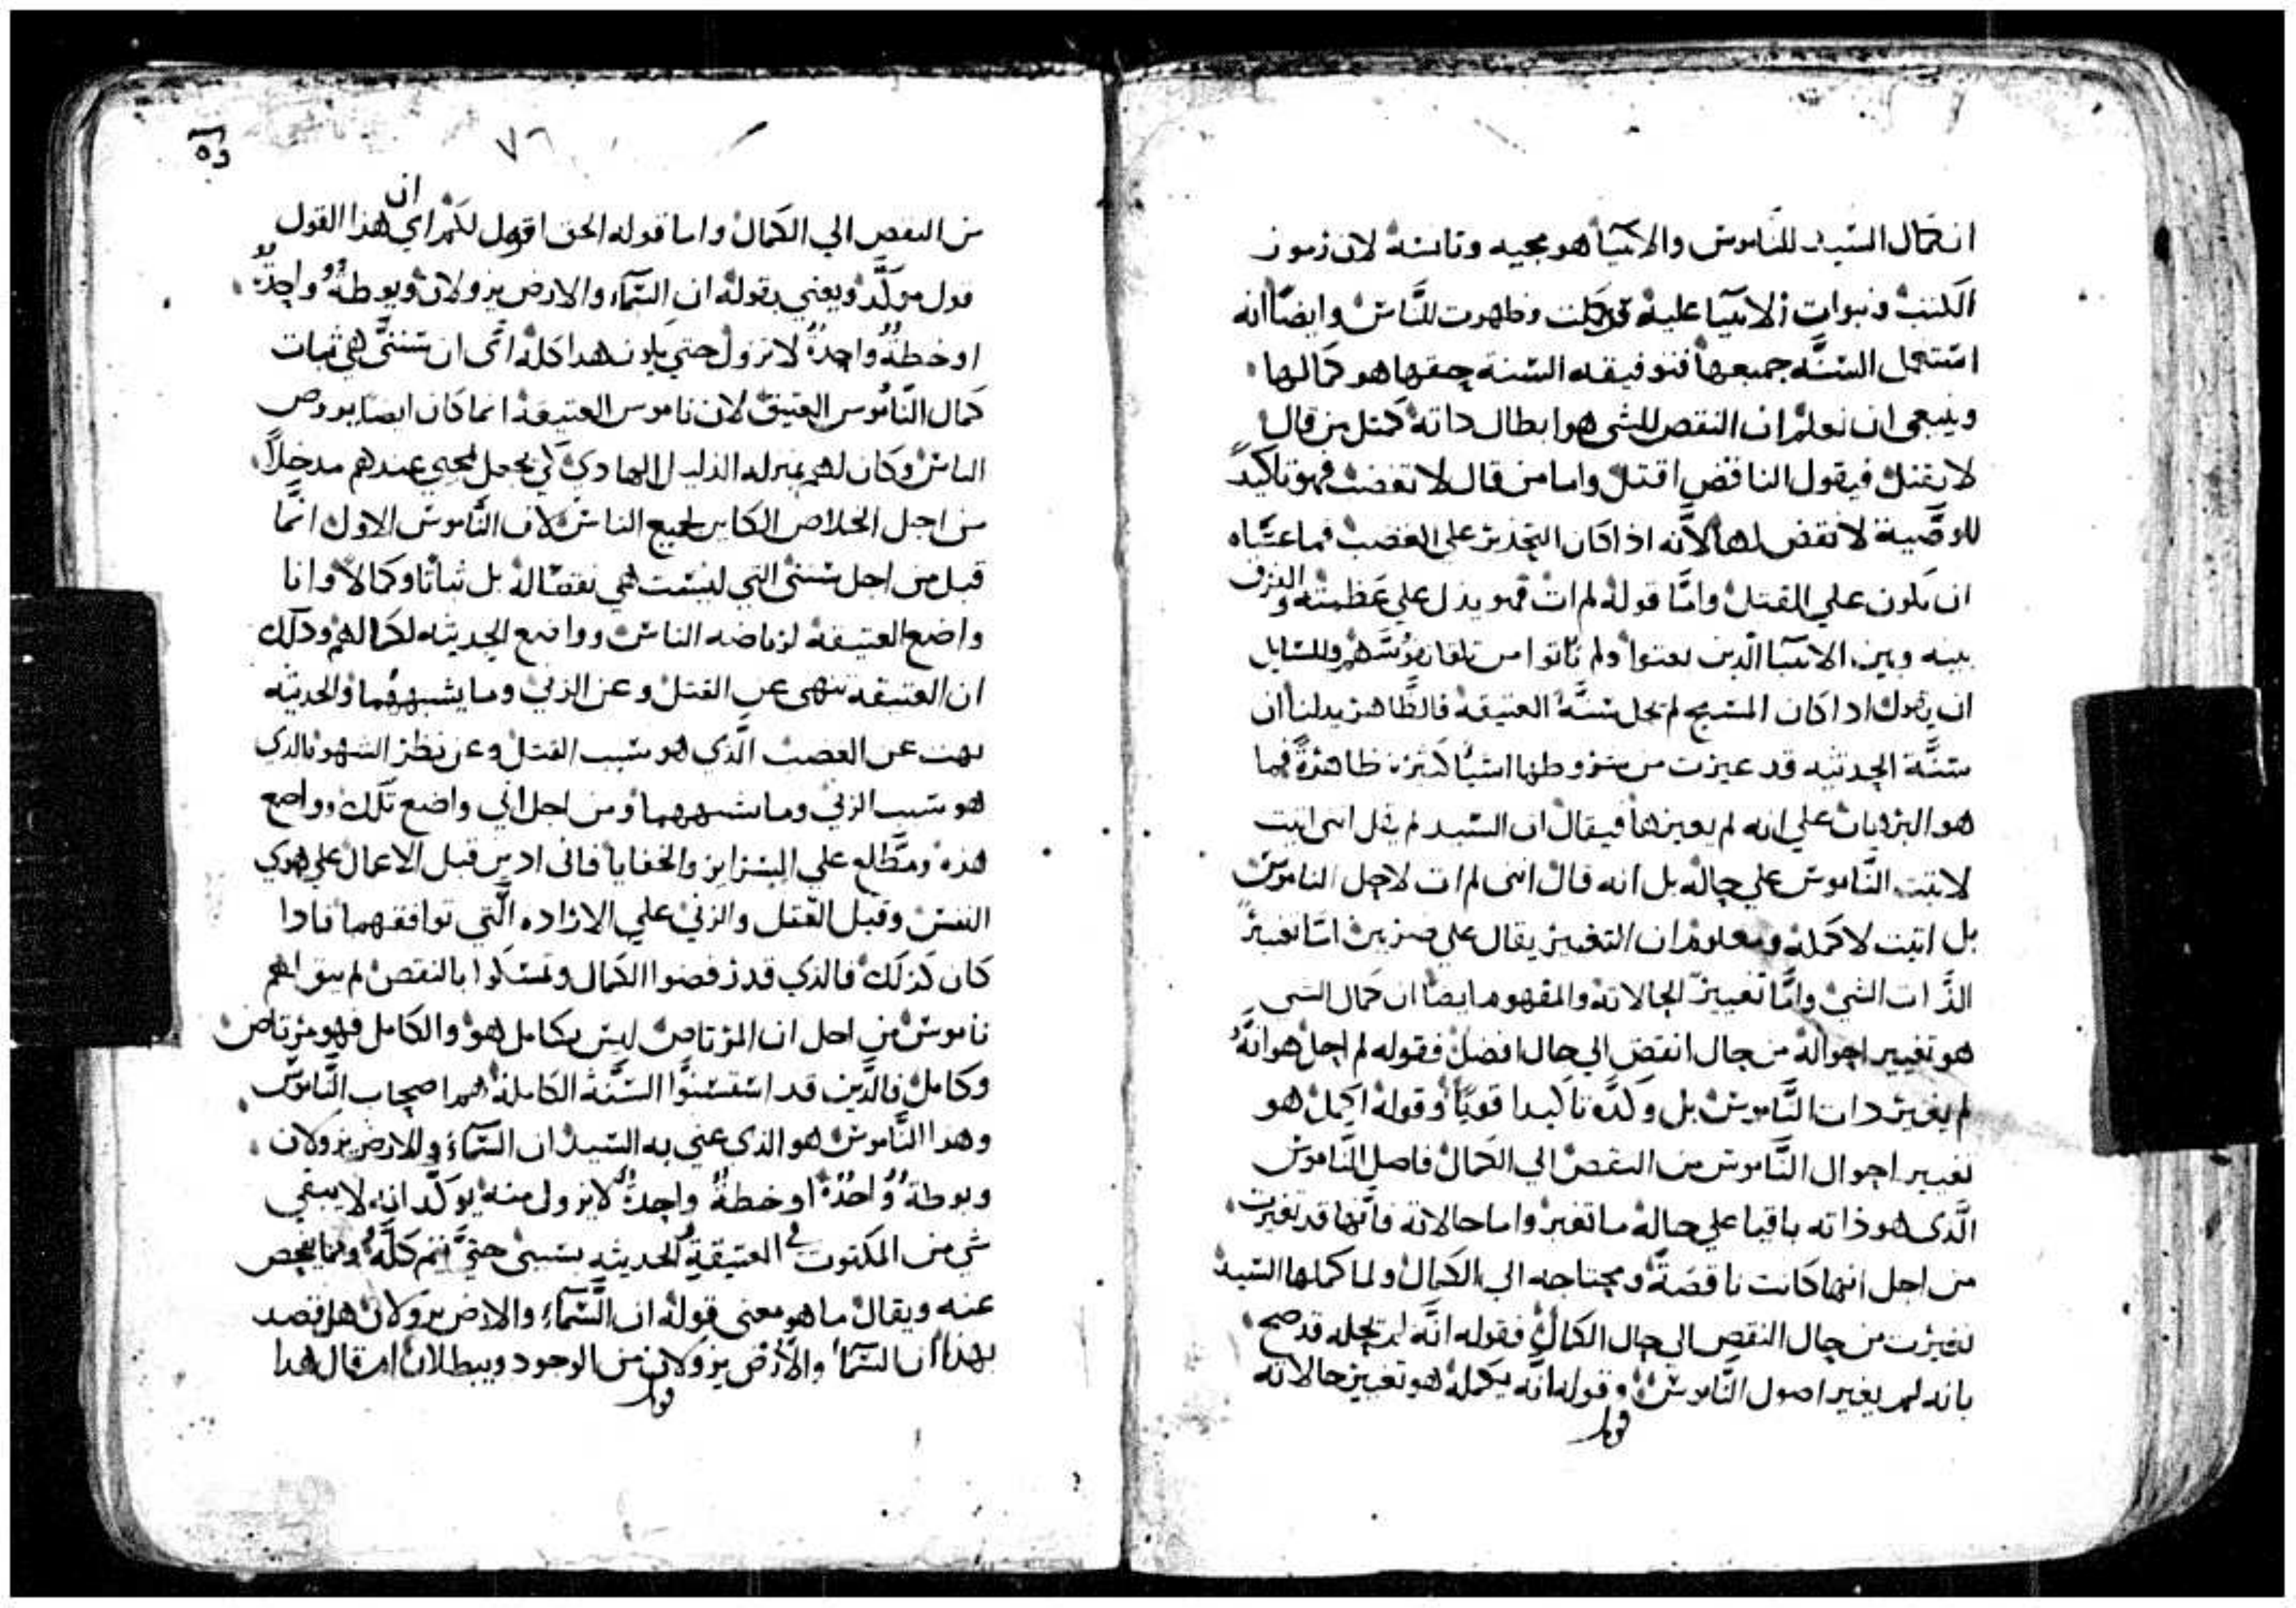 ان كمال السيد للناموس والانبيا هو مجيه وتانسه لان رموز
الكتب ونبوات الانبيا عليه قد كملت وظهرت للناس وايضا انه
استعمل السنه جميعها فتوفيقه السنة حقها هو كمالها
وينبعى ان نعلم ان النقض للشى هو ابطال داته كمثل من قال
لا يقتل فيقول الناقض اقتل واما من قال لا تغضب فهو تاكيد
للوصية لا نقض لها لانه اذا كان التحذير على الغضب فما عساه
ان يكون علي القتل واما قوله لم ات فهو يدل علي عظمته والفرق
بينه وبين الانبيا الدين بعتوا ولم ياتوا من تلقا نفوسهم وللسايل
ان يقول ادا كان المسيح لم يحل سنة العتيقة فالظاهر يدلنا ان
سنة الحديثه قد غيرت من شروطها اشيا كثيره ظاهرة فما
هو البرهان علي انه لم يغيرها فيقال ان السيد لم يقل اننى اتيت
لاتبت الناموس علي حاله بل انه قال اننى لم ات لاحل الناموس
بل اتيت لاكمله ومعلوم ان التغيير يقال علي ضربين اما تغيير
الذات الشي واما تغيير الحالاته والمفهوم ايضا ان كمال الشى
هو تغيير احواله من حال انقص الي حال افضل فقوله لم احل هو انه
لم يغير دات الناموس بل وكده تاكيدا قويا وقوله اكمل هو
تغيير احوال الناموس من النقص الي الكمال فاصل الناموس
الدى هو ذاته باقيا علي حاله ما تغير واما حالاته فانها قد تغيرت
من اجل انها كانت ناقصة ومحتاجه الي الكمال ولما كملها السيد
تغيرت من حال النقص الى حال الكمال فقوله انه لم يحله قد صح
بانه لم يغير اصول الناموس وقوله انه يكمله هو تغيير حالاته
٧٦
من النقص الي الكمال واما قوله الحق اقول لكم اي ان هذا القول
قول موكد ويعني بقوله ان السما والارض يزولان ويوطة واحدة
او خطة واحدة لا تزول حتي يكون هدا كله اى ان سنتى هي ثبات
كمال الناموس العتيق لان ناموس العتيقة انما كان ايضا يروض
الناس وكان لهم بمنزله الدليل الهادي لكي يجعل لمجي عندهم مدخلا
من اجل الخلاص الكاين لجميع الناس لان الناموس الاول انما
قبل من اجل سنتى التي ليست هي نقضا له بل ثباتا وكمالا وانا
واضع العتيقة لرياضه الناس وواضع الحديثه لكمالهم ودلك
ان العتيقه تنهى عن القتل وعن الزني وما يشبههما والحديثه
نهت عن الغضب الدي هو سبب القتل وعن نظر الشهوة الدي
هو سبب الزني وما يشبههما ومن اجل اني واضع تلك وواضع
هذه ومطلع علي السراير والخفايا فانى ادين قبل الاعمال علي هوي
النفس وقبل القتل والزني علي الاراده التي توافقهما فادا
كان كذلك فالذي قد رفضوا الكمال وتمسكوا بالنقص لم يبق لهم
ناموس من اجل ان المرتاض ليس بكامل هو والكامل فهو مرتاض
وكامل فالدين قد استسنوا السنة الكاملة هم اصحاب الناموس
وهدا الناموس هو الذي عني به السيد ان السما والارض يزولان
ويوطة واحدة او خطة واحدة لا يزول منه يوكد انه لا يبقي
شي من المكتوب في العتيقة الحديثه بسببى حتي يتم كله ومما يفحص
عنه ويقال ما هو معنى قوله ان السما والارض يزولان هل قصد
بهذا ان السما والارض يزولان من الوجود ويبطلان ام قال هدا